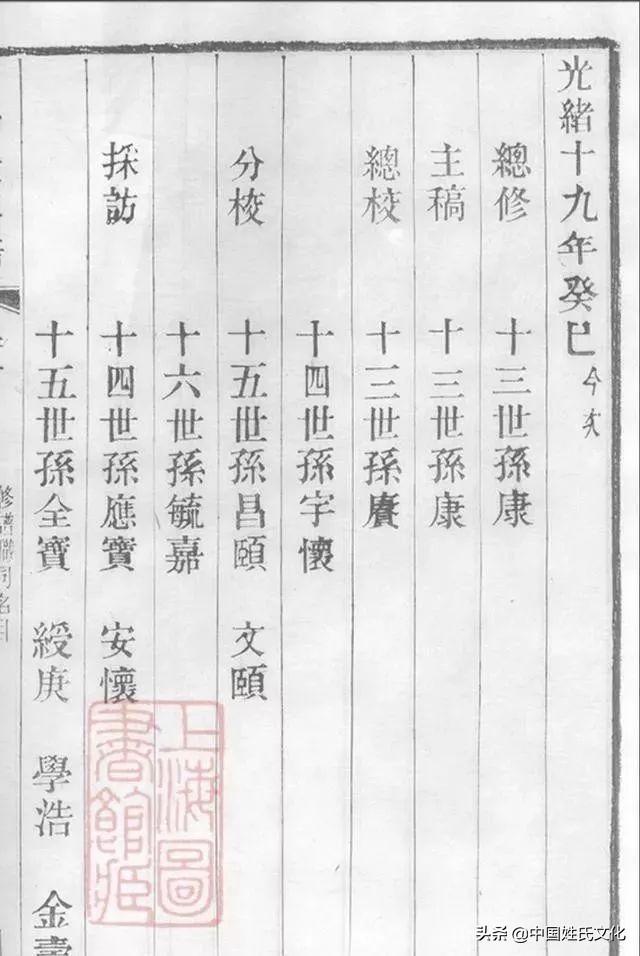 光緒十九年癸巳今次
總修 十三世孫康
主稿 十三世孫康
總校 十三世孫賡
十四世孫字懷
分校 十五世孫昌頤 文頤
十六世孫毓嘉
採訪 十四世孫應寶 安懷
十五世孫全寶 綬庚 學浩 金壽
修譜職司名目
上海圖書館藏
头条 @中国姓氏文化